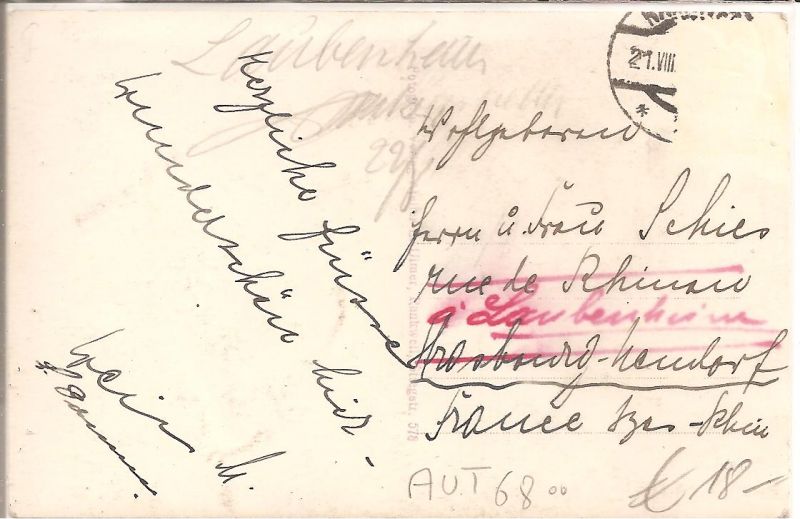 Laubenheim
Herzliche Grüsse
wunderschön hier -
Wohlgeboren
Herrn u. Frau Schies
rue de Rhinau
à Laubenheim
Strasbourg-Neudorf
France Bas-Rhin
21.VIII
AUT 68 00
18-
578